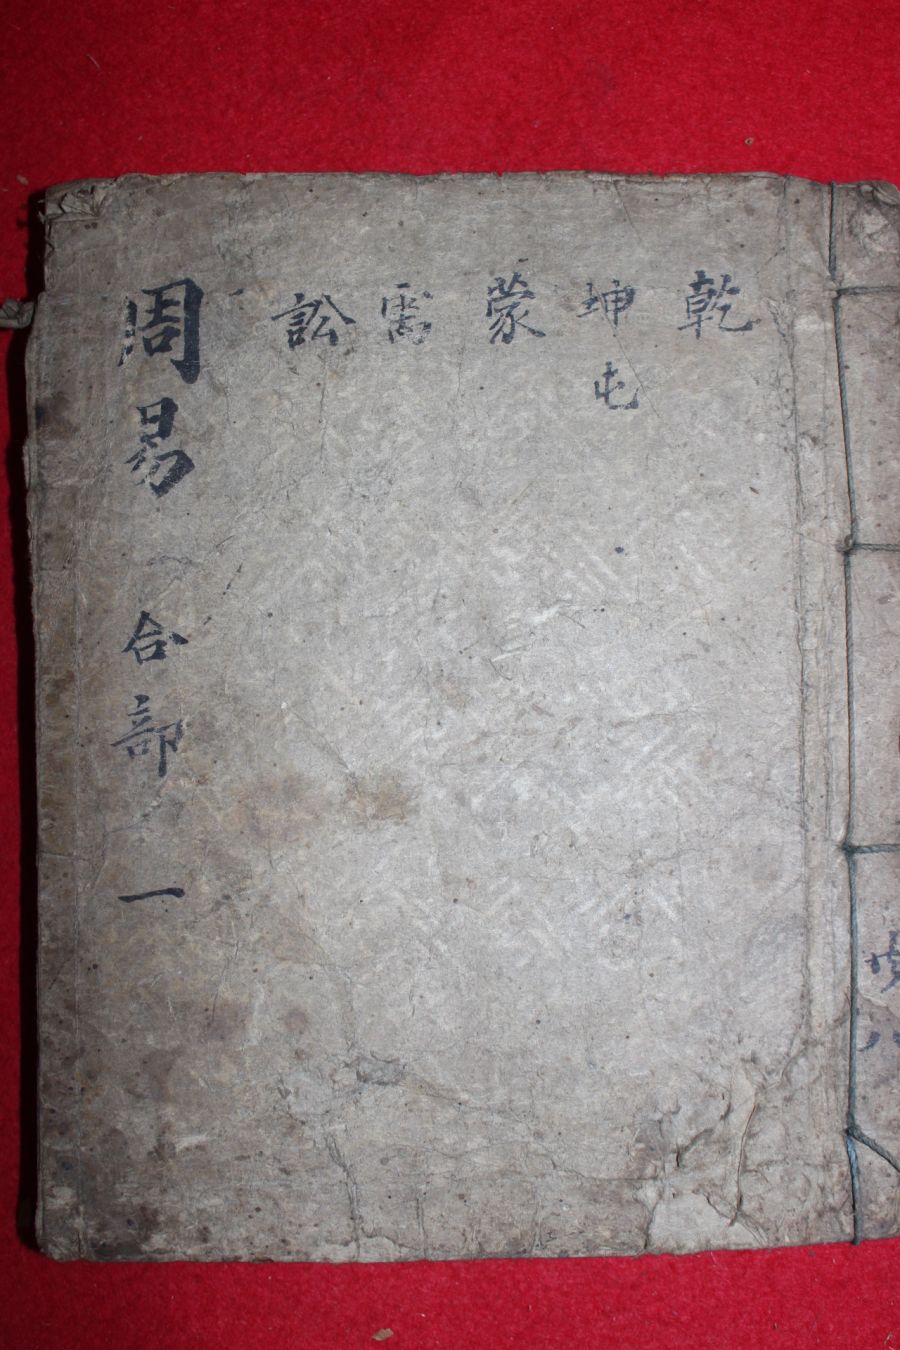 乾
坤屯
蒙
需
訟
周易 合部 一